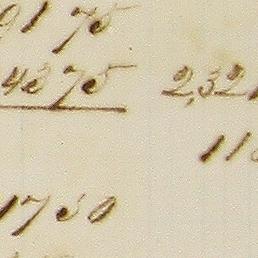 91 75
43 75 2,32
11
1750